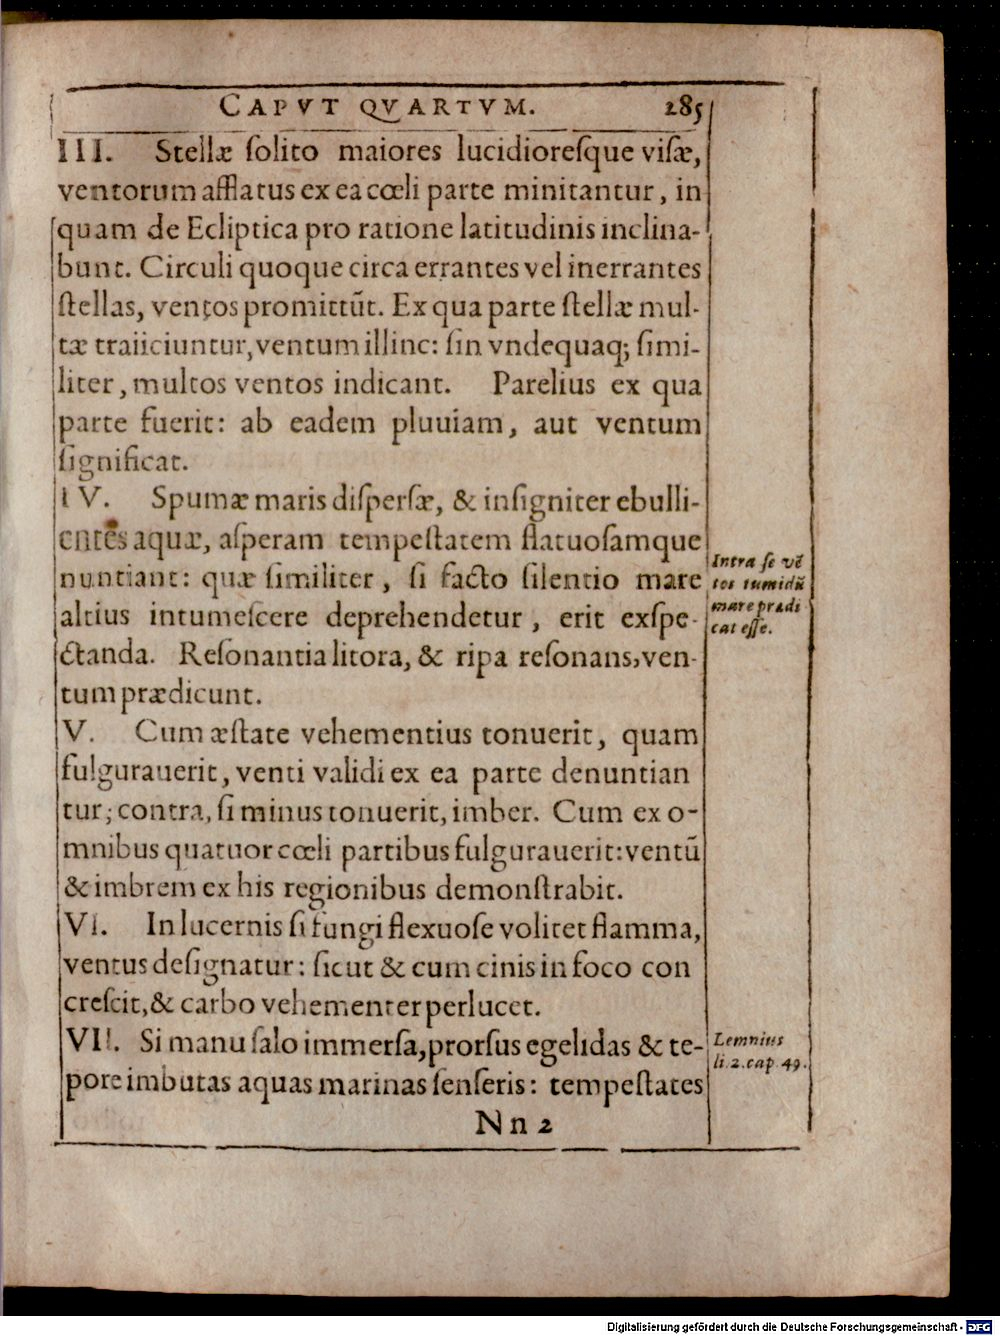 CAPVT QVARTVM. 285
III. Stellæ ſolito maiores lucidioreſque viſæ,
ventorum afflatus ex ea cœli parte minitantur, in
quam de Ecliptica pro ratione latitudinis inclina-
bunt. Circuli quoque circa errantes vel inerrantes
ſtellas, ventos promittūt. Ex qua parte ſtellæ mul-
tæ traiiciuntur, ventum illinc: ſin vndequaq; ſimi-
liter, multos ventos indicant. Parelius ex qua
parte fuerit: ab eadem pluuiam, aut ventum
ſignificat.
IV. Spumæ maris diſperſæ, & inſigniter ebulli-
entes aquæ, aſperam tempeſtatem flatuoſamque
nuntiant: quæ ſimiliter, ſi facto ſilentio mare
altius intumeſcere deprehendetur, erit exſpe-
ctanda. Reſonantia litora, & ripa reſonans, ven-
tum prædicunt.
Intra ſe vē
tos tumidū
mare prædi
cat eſſe.
V. Cum æſtate vehementius tonuerit, quam
fulgurauerit, venti validi ex ea parte denuntian
tur; contra, ſi minus tonuerit, imber. Cum ex o-
mnibus quatuor cœli partibus fulgurauerit: ventū
& imbrem ex his regionibus demonſtrabit.
VI. In lucernis ſi fungi flexuoſe volitet flamma,
ventus deſignatur: ſicut & cum cinis in foco con
creſcit, & carbo vehementer perlucet.
VII. Si manu ſalo immerſa, prorſus egelidas & te-
pore imbutas aquas marinas ſenſeris: tempeſtates
Lemnius
li. 2. cap. 49.
Nn 2
Digitalisierung gefördert durch die Deutsche Forschungsgemeinschaft - DFG